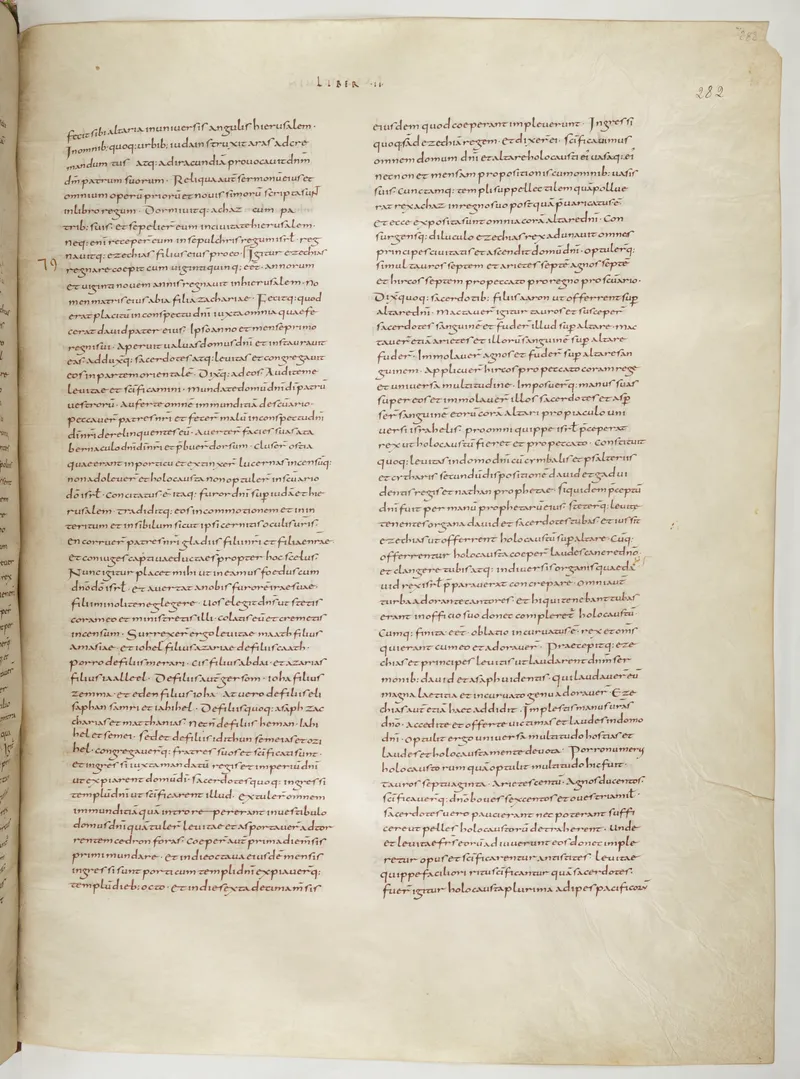 282
LIBER ·II·
282
fecit sibi altaria in uniuersis angulis hierusalem·
Jn omnib; quoq; urbib; iuda instruxit aras ad cre
mandum tus· atq; ad iracundiā prouocauit dnm̄
dm̄ patrum suorum· Reliqua aut̄ sermonū eius et
omnium operū priorū et nouissimorū scripta sunt
in libro regum· Dormiuitq; achaz cum pa
trib; suis· et sepelier̄ eum in ciuitate hierusalem·
neq; eni receper̄ eum in sepulchris regum isrl· reg
nauitq; ezechias filius eius pro eo· Jgitur ezechias
79
regnare coepit cum uigintiquinq; eēt annorum
et uiginti nouem annis regnauit in hierusalem· no
men matris eius abia filia zachariae· Fecitq; quod
erat placitū in conspectu dnī iuxta omnia quae fe
cerat dauid pater eius· Ipse anno et mense primo
regni sui· Aperuit ualuas domus dnī et instaurauit
eas· adduxq; sacerdotes atq; leuitas et congregauit
eos in partem orientalē· Dixq; ad eos· Audite me
leuitae et scificamini· mundate domū dnī dī patrū
uestrorū· Auferte omnē inmunditiā de scuario·
peccauer̄ patres nrī et fecer̄ malū in conspectu dnī
dī nrī derelinquentes eū· Auerter̄ facies suas a ta
bernaculo dnī dī nrī et p̄buer̄ dorsum· cluser̄ ostia
quae erant in porticu et extinxer̄ lucernas· incensūq;
non adoleuer̄ et holocausta non optuler̄ in scuario
dō isrl· Concitatus ē itaq; furor dnī sup iudā et hie
rusalem· tradiditq; eos in commotionem et in in
teritum et in sibilum sicut ipsi cernitis oculis uris·
en corruer̄ patres nrī gladiis filii nrī et filiae nrae·
et coniuges captiuae ductae s propter hoc scelus·
Nunc igitur placet mihi ut ineamus foedus cum
dnō dō isrl· et auertat a nobis furorē irae suae·
filii mi nolite neglegere· Uos elegit dns ut stetis
coram eo et ministretis illi· colatis eū et cremetis
incensum· Surrexer̄ ergo leuitae maath filius
amasiae· et iohel filius azariae de filiis caath·
porro de filiis merari· cis filius abdai· et azarias
filius iallel· De filiis aut̄ gersom· ioha filius
zemma· et eden filius ioha· At uero de filiis eli
saphan samri et iahihel· De filiis quoq; asaph zac
charias et matthanias· Necn̄ de filiis heman· iahi
hel et semei· sed et de filiis idithun semeias et ozi
hel· congregauerq; fratres suos et scificati sunt·
et ingressi iuxta mandatū regis et imperiū dnī
ut expiarent domū dī· sacerdotes quoq; ingressi
templū dnī ut scificarent illud· extuler̄ omnem
inmunditiā quā intro reppererant in uestibulo
domus dnī quā tuler̄ leuitae et asportauer̄ ad tor
rentem cedron foras· Coeper̄ aut̄ prima die msis
primi mundare· et in die octaua eiusdē mensis
ingressi sunt porticum templi dnī expiauerq;
templū dieb; octo· Et in die sexta decima m̄sis
eiusdem quod coeperant impleuerunt· Jngressi
quoq; s ad ezechiā regem· et dixer̄ ei· scificauimus
omnem domum dnī et altare holocausti ei· uasaq; ei
necnon et mensam propositionis cum omnib; uasis
suis· cunctamq; templi suppellectalem quā pollue
rat rex achaz in regno suo postequā p̄uaricatus ē·
et ecce exposita sunt omnia corā altare dnī· Con
surgensq; diluculo ezechias rex adunauit omnes
principes ciuitatis et ascendit domū dnī· optulerq;
simul tauros septem et arietes septē agnos septē
et hircos septem pro peccato pro regno pro scuario·
Dixquoq; sacerdotib; filiis aaron ut offerrent sup
altare dnī· mactauer̄ igitur tauros et susceper̄
sacerdotes sanguinē et fuder̄ illud sup altare· mac
tauer̄ etiā arietes et illorū sanguinē sup altare
fuder̄· Immolauer̄ agnos et fuder̄ sup altare san
guinem· Applicuer̄ hircos pro peccato coram rege
et uniuersa multitudine· Imposuerq; manus suas
super eos et immolauer̄ illos sacerdotes et asp
ser̄ sanguinē eorū corā altari pro piaculo uni
uersi israhelis· pro omni quippe isrl p̄ceperat
rex ut holocaustū fieret et pro peccato· Constituit
quoq; leuitas in domo dnī cū cymbalis et psalteriis
et cytharis secundū dispositionē dauid et gad ui
dentis regis et nathan prophetae· siquidem p̄ceptū
dnī fuit per manū prophetarū eius· steterq; leuitae
tenentes organa dauid et sacerdotes tubas· et iussit
ezechias ut offerrent holocaustū sup altare· Cūq;
offerrentur holocausta coeper̄ laudes canere dno
et clangere tubis atq; in diuersis organis quae da
uid rex isrl p̄parauerat concrepare· omni aut̄
turba adorante cantores· et hi qui tenebant tubas
erant in officio suo donec compleret holocaustū·
Cumq; finita eēt oblatio incuruatus ē rex et oms
qui erant cum eo et adorauer̄· Praecepitq; eze
chias et principes leuitis ut laudarent dnm ser
monib; dauid et asaph uidentis· qui laudauer̄ eū
magna laetitia et incuruato genu adorauer̄· Eze
chias aut̄ etiā haec addidit· Implestis manus uras
dnō· accedite et offerte uictimas et laudes in domo
dnī· optulit ergo uniuersa multitudo hostias et
laudes et holocausta mente deuota· Porro numerus
holocaustorum quā optulit multitudo hic fuit·
tauros septuaginta· Arietes centū· Agnos ducentos·
scificauerq; dno boues sexcentos et oues tria mil·
sacerdotes uero pauci erant nec poterant suffi
cere ut pelles holocaustorū detraherent· Unde
et leuitae frs eorū adiuuerunt eos donec imple
retur opus et scificarentur antistites· Leuitae
quippe faciliori ritu scificantur quā sacerdotes·
fuer̄ igitur holocausta plurima adipes pacificorum